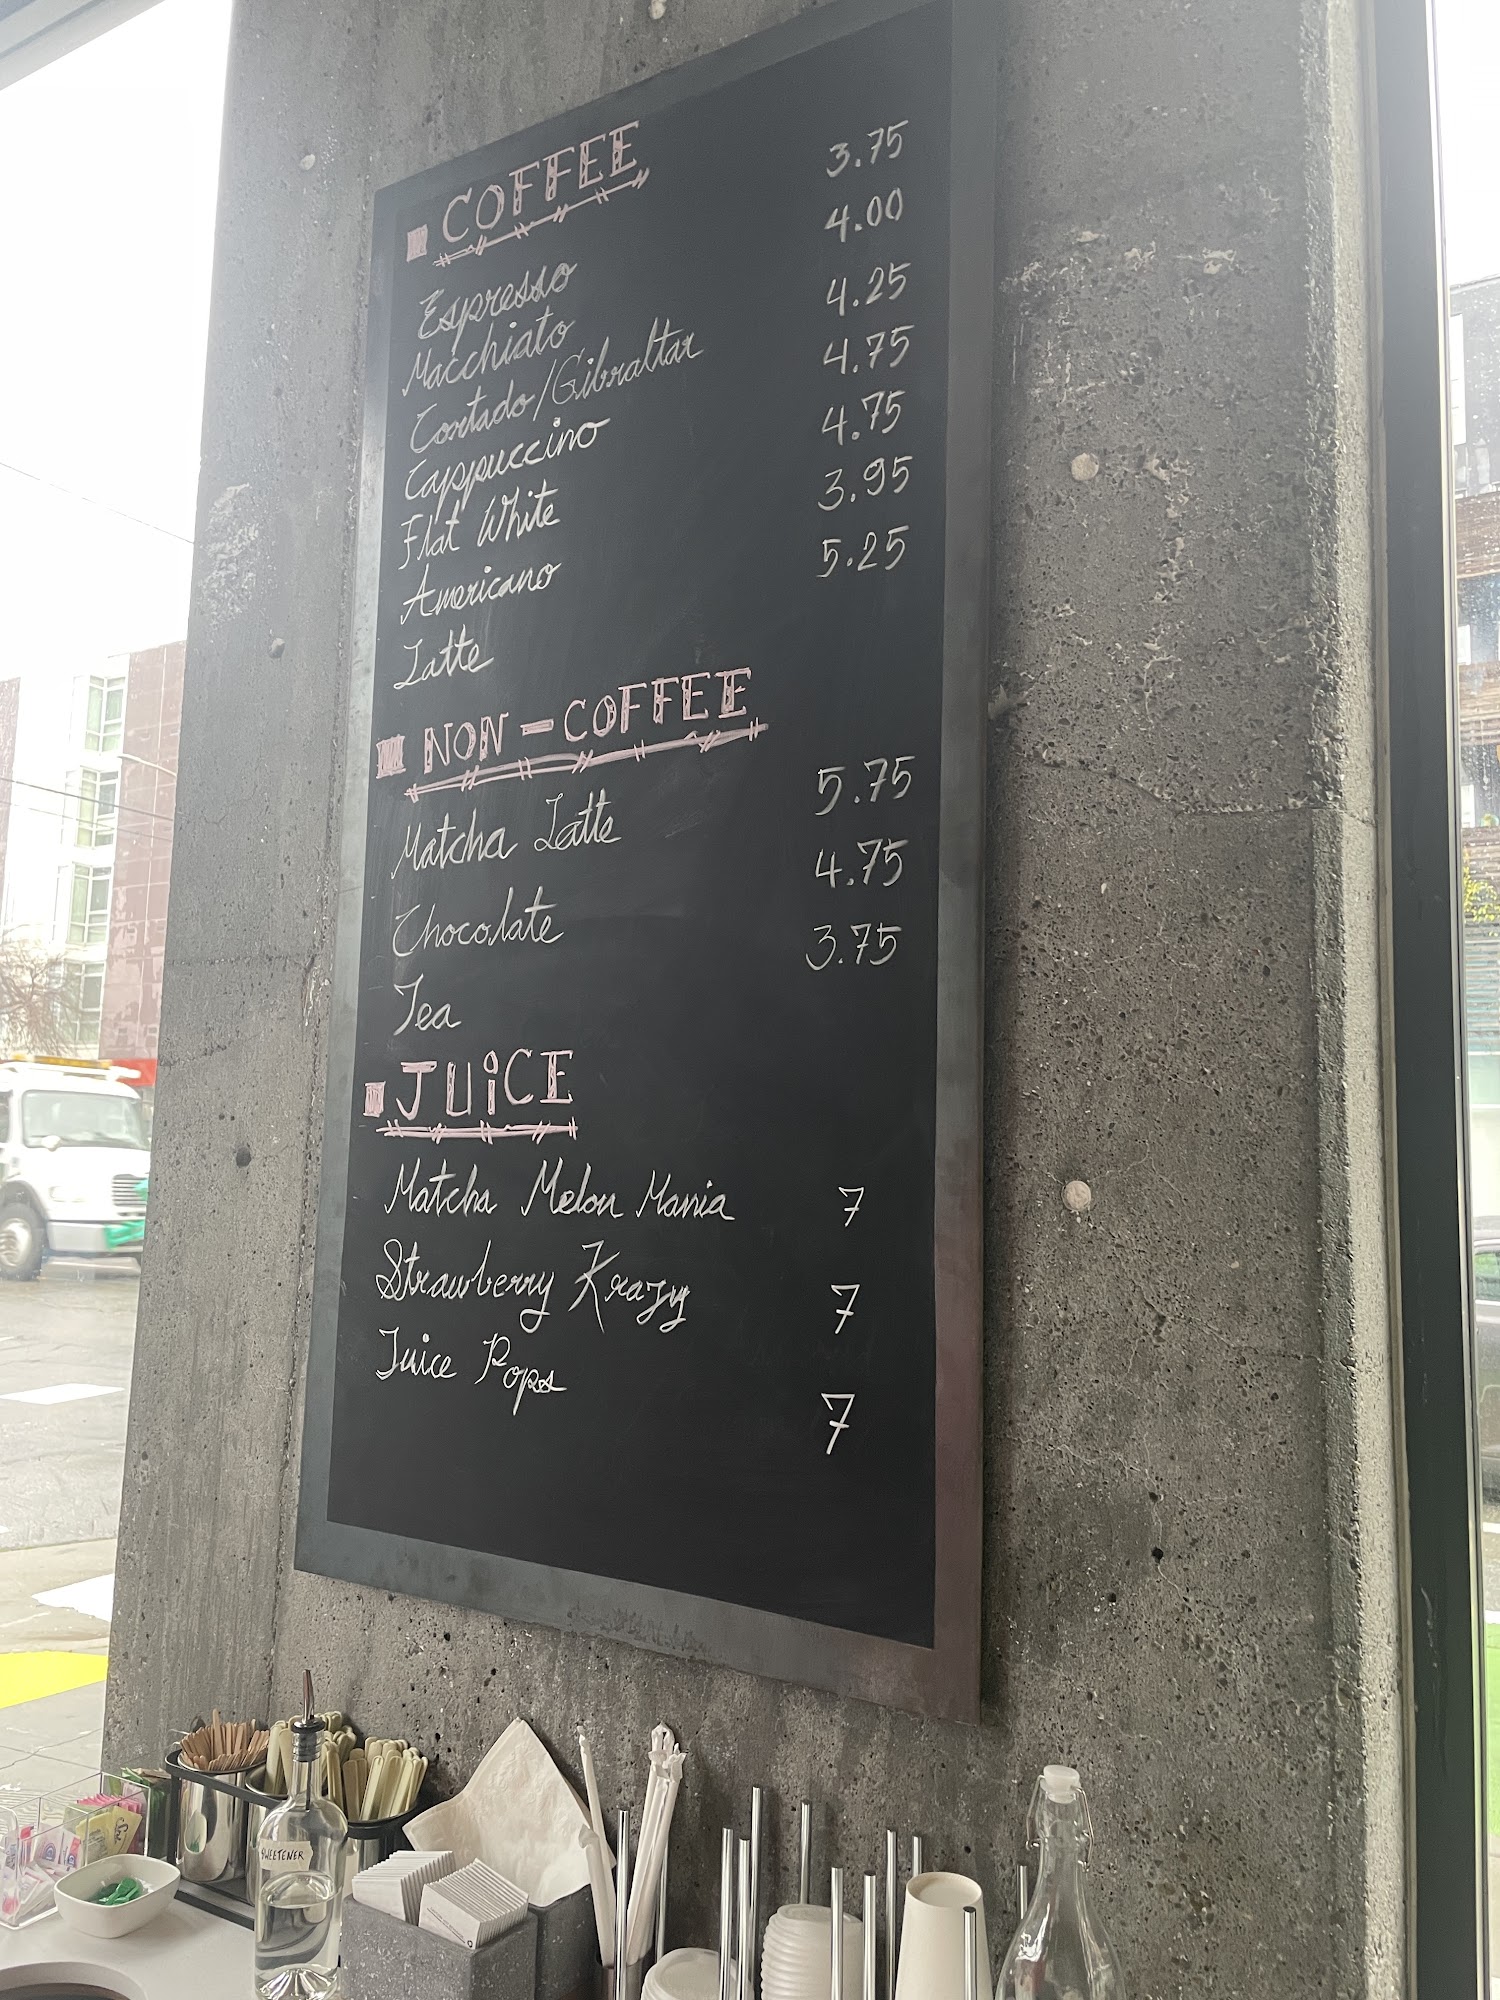 COFFEE
Espresso 3.75
Macchiato 4.00
Cortado/Gibraltar 4.25
Cappuccino 4.75
Flat White 4.75
Americano 3.95
Latte 5.25
NON-COFFEE
Matcha Latte 5.75
Chocolate 4.75
Tea 3.75
JUiCE
Matcha Melon Mania 7
Strawberry Krazy 7
Juice Pops 7
SWEETENER